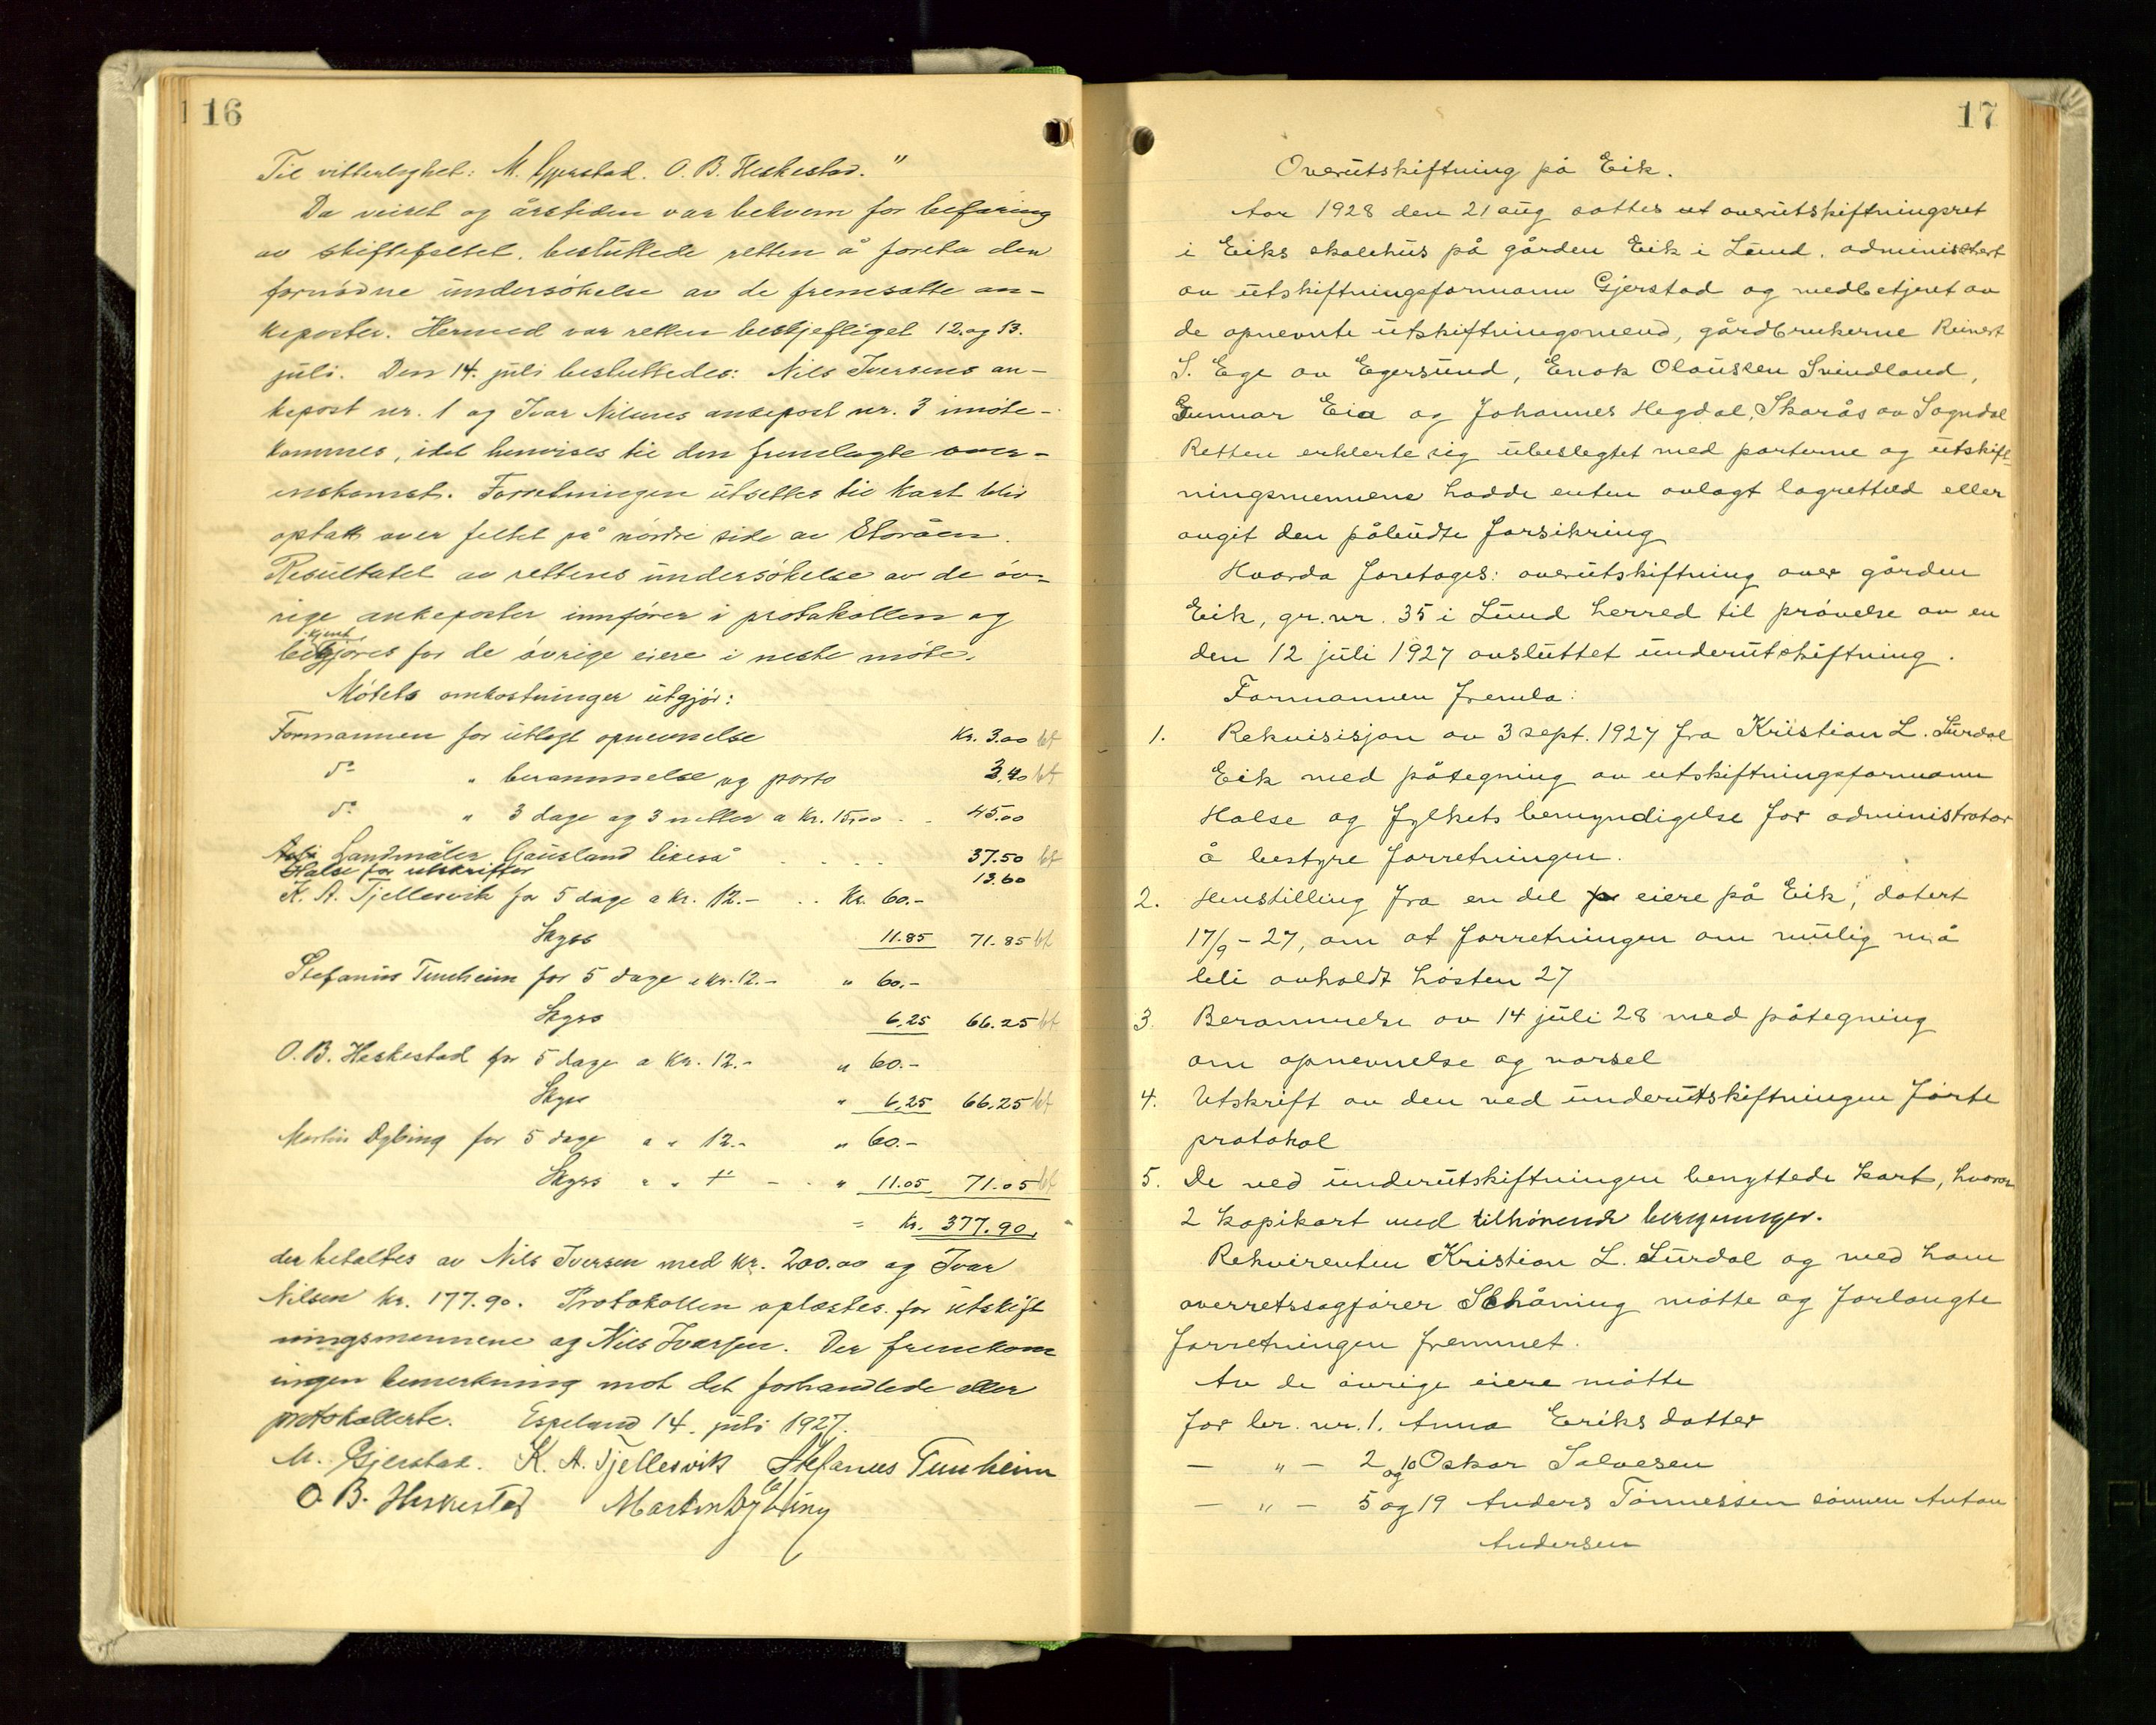 16
Til vitterlighet: M. Gjerstad. O. B. Heskestad."
Da veiret og årstiden var bekvem for befaring
av skiftefeltet, besluttede retten å foreta den
fornødne undersøkelse av de fremsatte an-
keposter. Hermed var retten beskjeftiget 12. og 13.
juli. Den 14. juli besluttedes: Nils Iversens an-
kepost nr. 1 og Ivar Nilsens ankepost nr. 3 imøte-
kommes, idet henvises til den fremlagte over-
enskomst. Forretningen utsettes til kart blir
optatt over feltet på nordre side av Storåen.
Resultatet av rettens undersøkelse av de øv-
rige ankeposter innføres i protokollen og
bekjentgjøres for de øvrige eiere i neste møte.
Møtets omkostninger utgjør:
Formannen for utlagt opnevnelse Kr. 3.00 bt
do " berammelse og porto 3,40 bt
do " 3 dage og 3 netter a Kr. 15,00 . . 45.00
Landmåler Gausland likeså . . . . 37.50 bt
Halse for utskrifter 13.60
K. A. Tjellesvik for 5 dage a kr. 12.- . . Kr. 60.-
Skyss 11.85 71.85 bt
Stefanus Tunheim for 5 dage a kr. 12.- " 60.-
Skyss 6,25 66.25 bt
O. B. Heskestad for 5 dage a Kr. 12.- " 60.-
Skyss " 6,25 66,25 bt
Martin Dybing for 5 dage " " 12.- " 60.-
Skyss " " - . " 11.05 71.05 bt
= Kr. 377.90,
der betaltes av Nils Iversen med kr. 200.00 og Ivar
Nilsen kr. 177.90. Protokollen oplæstes for utskift
ningsmennene og Nils Ivarsen. Der fremkom
ingen bemerkning mot det forhandlede eller
protokollerte. Espeland 14. juli 1927.
M. Gjerstad. K. A. Tjellesvik Stefanus Tunheim
O. B. Heskestad Martin Dybing
17
Overutskiftning på Eik.
Aar 1928 den 21 aug sattes et overutskiftningsret
i Eiks skolehus på gården Eik i Lund, administrert
av utskiftningsformann Gjerstad og medbetjent av
de opnevnte utskiftningsmend, gårdbrukerne Reinert
S. Ege av Egersund, Enok Olaussen Svindland,
Gunnar Eia og Johannes Hegdal, Skarås av Sogndal
Retten erklerte sig ubeslegtet med parterne og utskift-
ningsmennene hadde enten avlagt lagretted eller
avgit den påbudte forsikring
Hvorda foretoges: overutskiftning over gården
Eik, gr. nr. 35 i Lund herred til prøvelse av en
den 12 juli 1927 avsluttet underutskiftning.
Formannen fremla:
1. Rekvisisjon av 3 sept. 1927 fra Kristian L. Surdal
Eik med påtegning av utskiftningsformann
Halse og fylkets bemyndigelse for administrator
å bestyre forretningen.
2. Henstilling fra en del eiere på Eik, datert
17/9-27, om at forretningen om mulig må
bli avholdt høsten 27
3. Berammelse av 14 juli 28 med påtegning
om opnevnelse og varsel
4. Utskrift av den ved underutskiftningen førte
protokol
5. De ved underutskiftningen benyttede kart, hvorav
2 kopikart med tilhørende beregninger.
Rekvirenten Kristian L. Surdal og med ham
overretssagfører Schåning møtte og forlangte
forretningen fremmet.
Av de øvrige eiere møtte
for br. nr. 1. Anna Eriksdatter
— " — 2 og 10 Oskar Salvesen
— " — 5 og 19 Anders Tønnessen sønnen Anton
Andersen